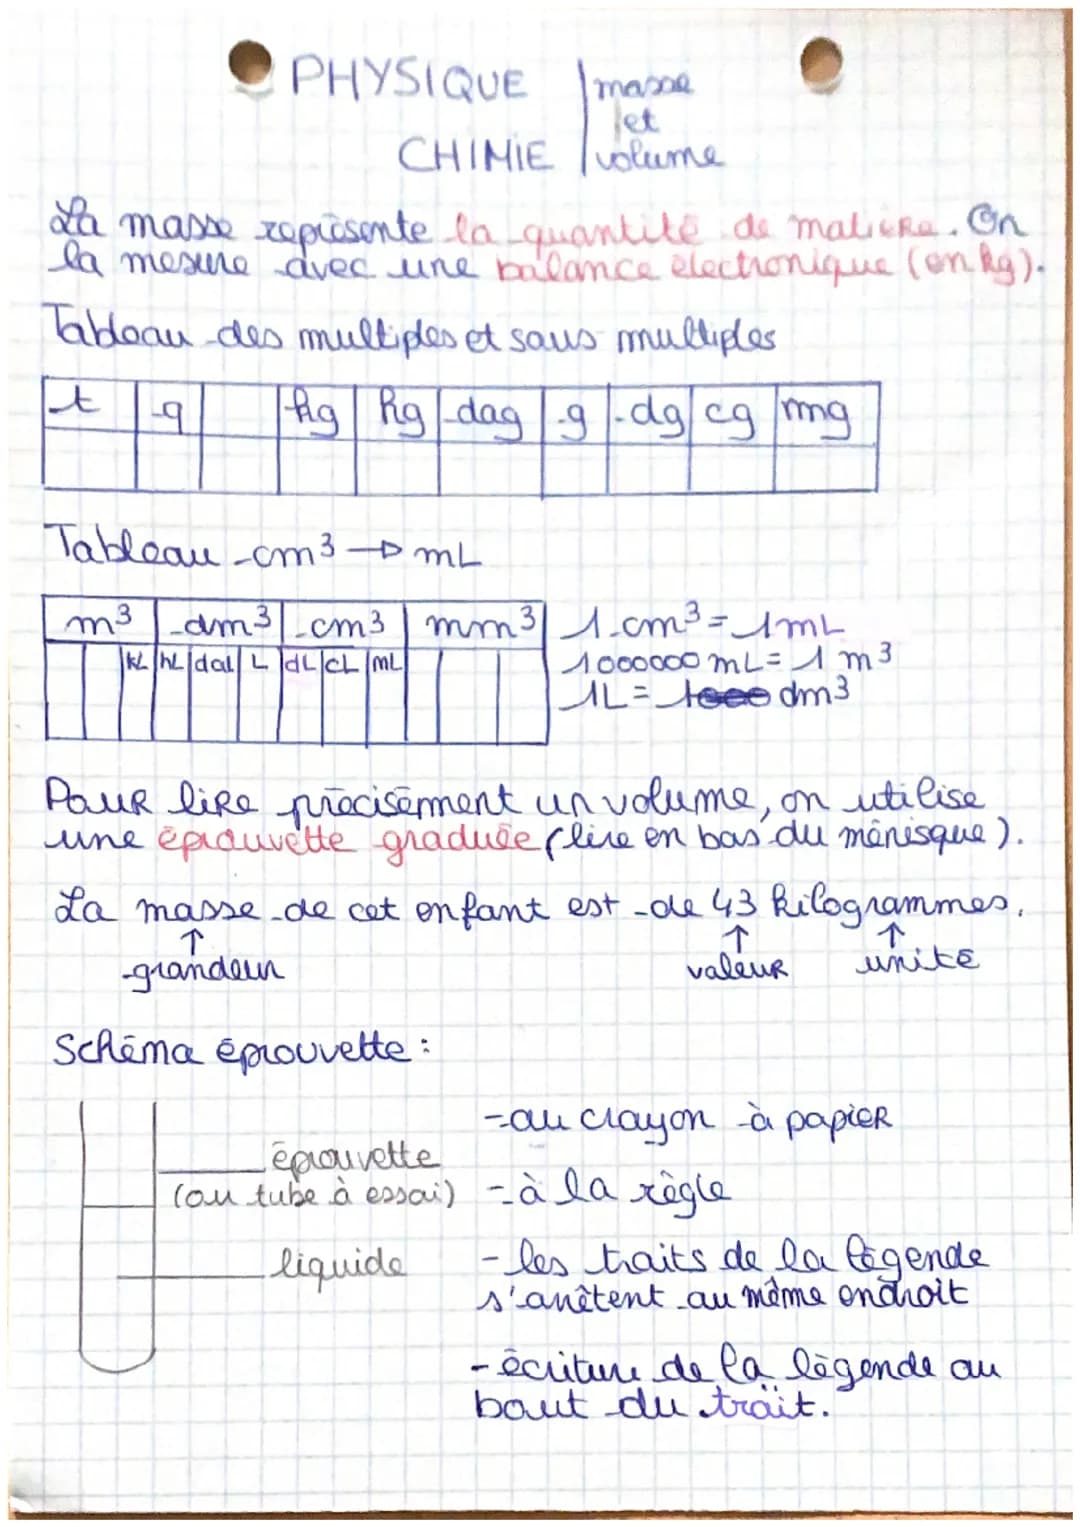 PHYSIQUE
CHIMIE
masse
et
volume
La masse représente la quantité de matière. On
la mesure avec une balance électronique (en kg).
Tableau des multiples et sous multiples
t q kg hg dag g dg cg mg
Tableau cm³ → mL
m³ dm³ cm³ mm³
kL hL daL L dL cL mL
1 cm³ = 1 mL
1000000 mL = 1 m³
1L = 1 dm³
Pour lire précisément un volume, on utilise
une éprouvette graduée (lire en bas du ménisque).
La masse de cet enfant est de 43 kilogrammes.
↑ ↑ ↑
grandeur valeur unité
Schéma éprouvette :
éprouvette
(ou tube à essai)
liquide
- au crayon à papier
- à la règle
- les traits de la légende
s'arrêtent au même endroit
- écriture de la légende au
bout du trait.